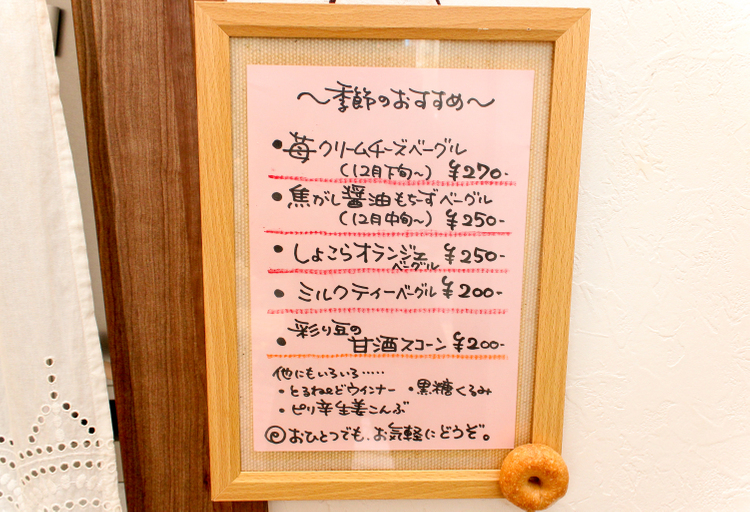 ～季節のおすすめ～
・苺クリームチーズベーグル
(12月下旬～) ¥270-
・焦がし醤油もちーずベーグル
(12月中旬～) ¥250-
・しょこらオランジェ ¥250-
ベーグル
・ミルクティーベーグル ¥200-
・彩り豆の
甘酒スコーン ¥200-
他にもいろいろ……
・とるねえどウインナー ・黒糖くるみ
・ピリ辛生姜こんぶ
おひとつでも、お気軽にどうぞ。